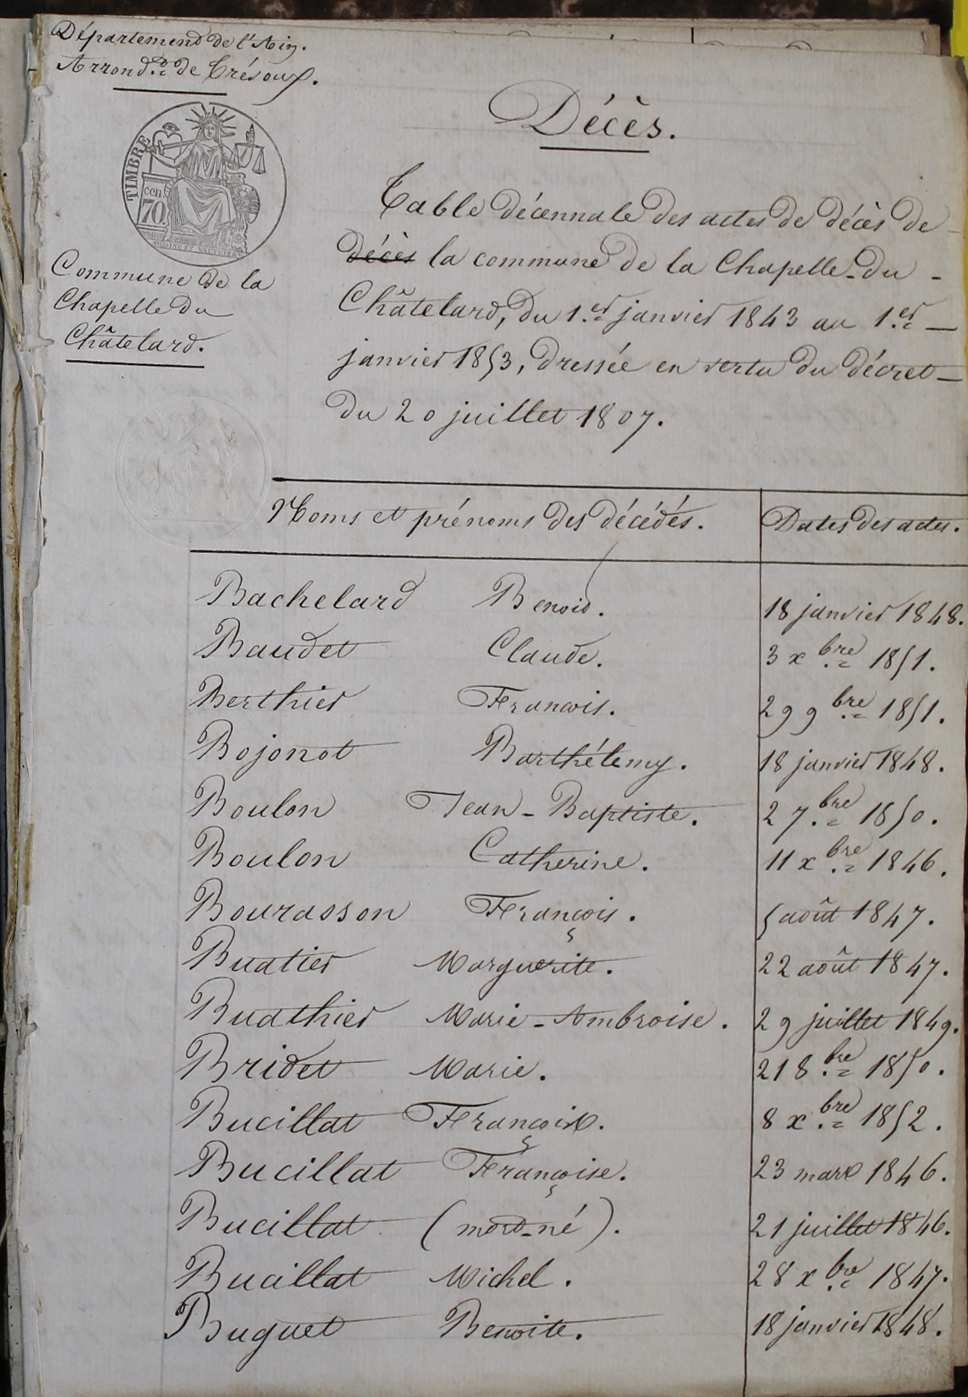 Département de l'Ain.
Arrond.t de Trévoux.
TIMBRE
cen.
70
Commune de la
Chapelle du
Châtelard.
Décès.
Table décennale des actes de décès de
décès la commune de la Chapelle-du-
Châtelard, du 1.er janvier 1843 au 1.er
janvier 1853, dressée en vertu du décret
du 20 juillet 1807.
Noms et prénoms des décédés. Dates des actes.
Bachelard Benoid. 18 janvier 1848.
Baudet Claude. 3 x.bre 1851.
Berthier Francois. 29 9.bre 1851.
Bojonot Barthélemy. 18 janvier 1848.
Boulon Jean-Baptiste. 2 7.bre 1850.
Boulon Catherine. 11 x.bre 1846.
Bourdoson François. 5 août 1847.
Buatier Marguerite. 22 août 1847.
Buathier Marie-Ambroise. 29 juillet 1849.
Bridet Marie. 21 8.bre 1850.
Bucillat François. 8 x.bre 1852.
Bucillat Françoise. 23 mars 1846.
Bucillat (mort-né). 21 juillet 1846.
Bucillat Michel. 28 x.bre 1847.
Buguet Benoite. 18 janvier 1848.